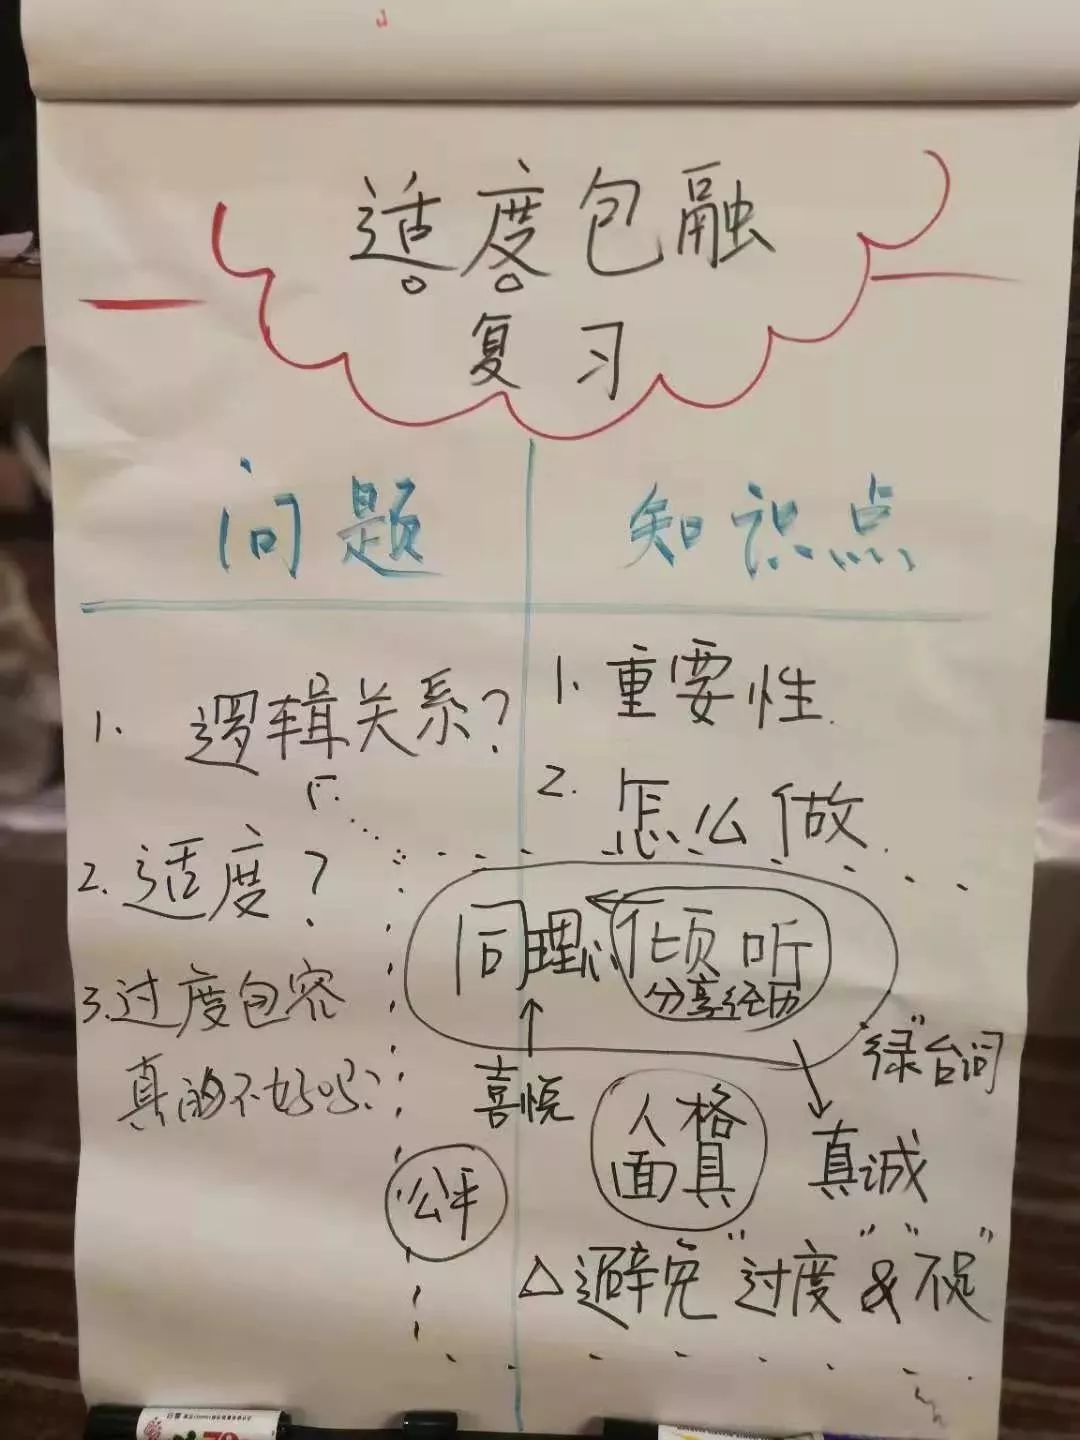 适度包融
复习
问题
知识点
1. 逻辑关系?
2. 适度?
3. 过度包容
真的不好吗?
1. 重要性.
2. 怎么做.
同理心
倾听
分享经历
喜悦
"绿"台词
人格
面具
真诚
公平
△避免"过度"&"不足"